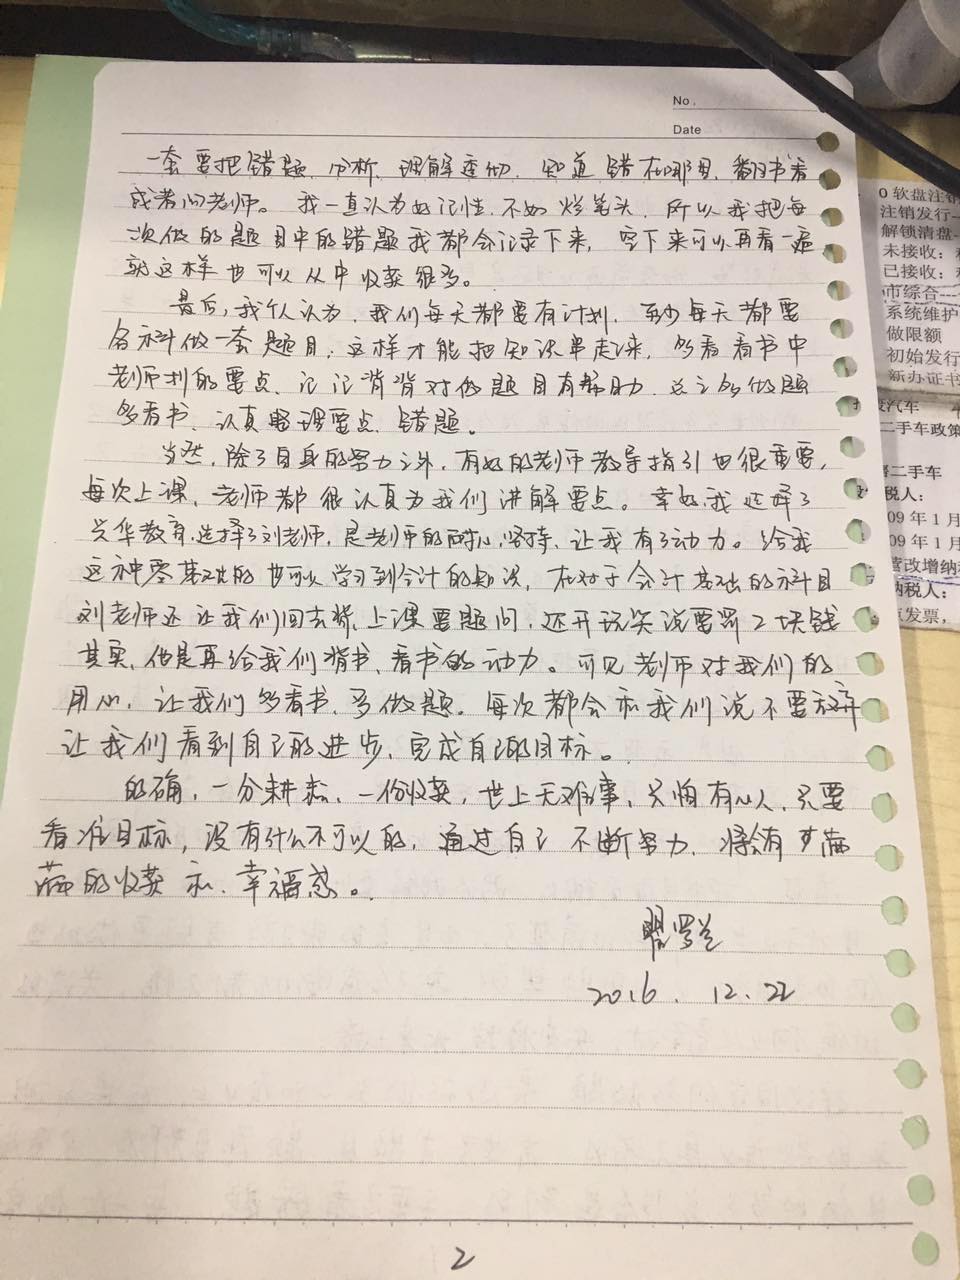 No.
Date
一套要把错题、分析、理解透彻、知道错在哪里,翻书看
或者问老师。我一直认为好记性不如烂笔头,所以我把每
次做的题目中的错题我都会记录下来,空下来可以再看一遍
就这样也可以从中收获很多。
最后,我个人认为,我们每天都要有计划,至少每天都要
各科做一套题目,这样才能把知识串起来,多看看书中
老师划的要点、记记背背对做题目有帮助,总之多做题
多看书、认真整理要点、错题。
当然,除了自身的努力之外,有好的老师教导指引也很重要,
每次上课,老师都很认真为我们讲解要点。幸好我选择了
兴华教育,选择了刘老师,是老师的耐心,坚持、让我有了动力。给我
这种零基础的也可以学习到会计的知识,在对于会计基础的科目
刘老师还让我们回去背,上课要题问,还开玩笑说要罚2块钱
其实,他是再给我们背书、看书的动力。可见老师对我们的
用心,让我们多看书、多做题。每次都会和我们说不要放弃
让我们看到自己的进步、完成自己的目标。
的确,一分耕耘、一份收获,世上无难事,只怕有心人,只要
看准目标,没有什么不可以的,通过自己不断努力,将会有梦满
满的收获和幸福感。
翟
2016.12.22
2
0 软盘注销
注销发行--
解锁清盘--
未接收:
已接收:
市综合---
系统维护
做限额
初始发行
新办证书
汽车
二手车政策
二手车
税人:
09 年 1 月
09 年 1 月
营改增纳税
纳税人:
发票,